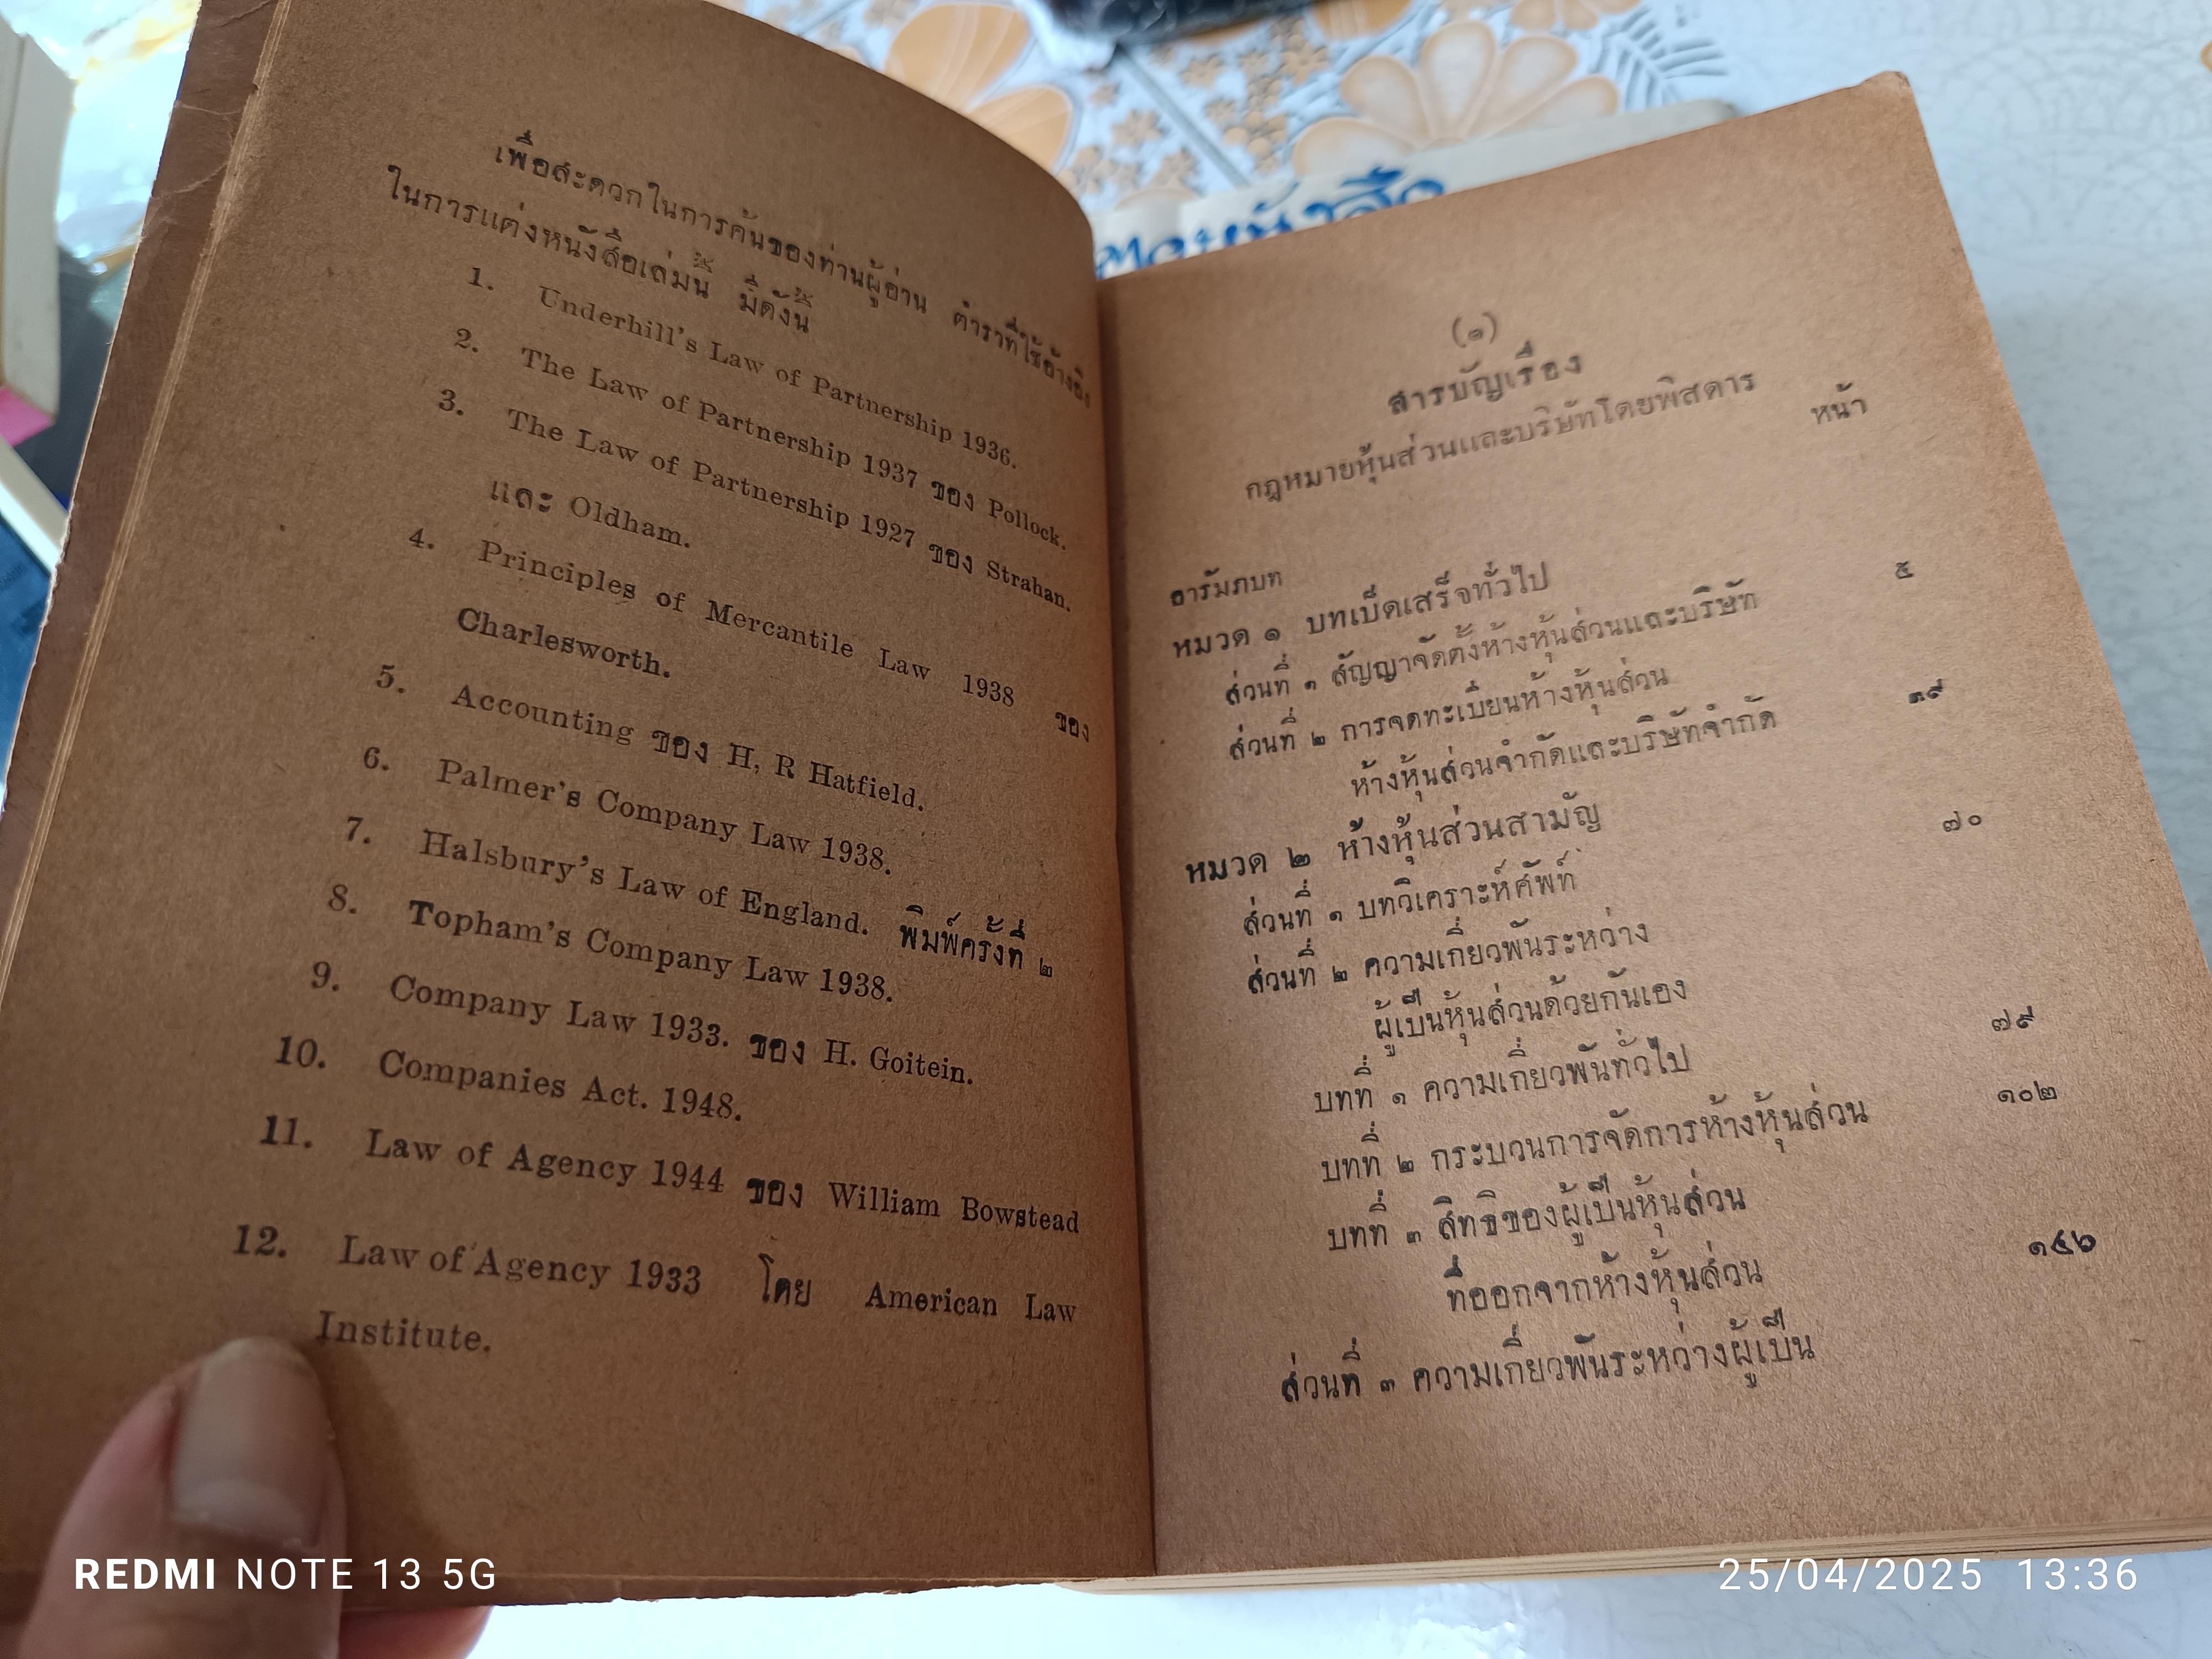 เพื่อสะดวกในการค้นของท่านผู้อ่าน ตำราที่ใช้อ้างอิง
ในการแต่งหนังสือเล่มนี้ มีดังนี้
1. Underhill's Law of Partnership 1936.
2. The Law of Partnership 1937 ของ Pollock.
3. The Law of Partnership 1927 ของ Strahan.
และ Oldham.
4. Principles of Mercantile Law 1938 ของ
Charlesworth.
5. Accounting ของ H, R Hatfield.
6. Palmer's Company Law 1938.
7. Halsbury's Law of England. พิมพ์ครั้งที่ ๒
8. Topham's Company Law 1938.
9. Company Law 1933. ของ H. Goitein.
10. Companies Act. 1948.
11. Law of Agency 1944 ของ William Bowstead
12. Law of Agency 1933 โดย American Law
Institute.
(๑)
สารบัญเรื่อง
กฎหมายหุ้นส่วนและบริษัทโดยพิสดาร
หน้า
อารัมภบท
หมวด ๑ บทเบ็ดเสร็จทั่วไป ๕
ส่วนที่ ๑ สัญญาจัดตั้งห้างหุ้นส่วนและบริษัท
ส่วนที่ ๒ การจดทะเบียนห้างหุ้นส่วน
ห้างหุ้นส่วนจำกัดและบริษัทจำกัด ๓๙
หมวด ๒ ห้างหุ้นส่วนสามัญ
ส่วนที่ ๑ บทวิเคราะห์ศัพท์ ๗๐
ส่วนที่ ๒ ความเกี่ยวพันระหว่าง
ผู้เป็นหุ้นส่วนด้วยกันเอง
บทที่ ๑ ความเกี่ยวพันทั่วไป ๗๙
บทที่ ๒ กระบวนการจัดการห้างหุ้นส่วน ๑๐๒
บทที่ ๓ สิทธิของผู้เป็นหุ้นส่วน
ที่ออกจากห้างหุ้นส่วน ๑๔๖
ส่วนที่ ๓ ความเกี่ยวพันระหว่างผู้เป็น
REDMI NOTE 13 5G
25/04/2025 13:36